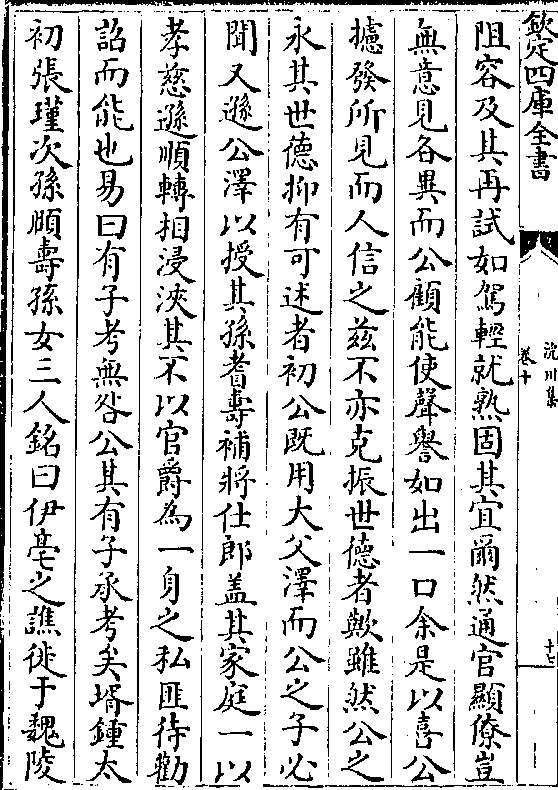 欽定四庫全書
沈川集
卷十
十七
阻容及其再試如駕輕就熟固其宜爾然通官顯僚豈
無意見各異而公顧能使聲譽如出一口余是以喜公
攄發所見而人信之兹不亦克振世德者歟雖然公之
永其世德抑有可述者初公既用大父澤而公之子必
聞又遜公澤以授其孫耆壽補將仕郎盖其家庭一以
孝慈遜順轉相浸浹其不以官爵為一身之私匪待勸
詔而能也易曰有子考無咎公其有子承考矣壻鍾太
初張瑾次孫頤壽孫女三人銘曰伊亳之譙徙于魏陵